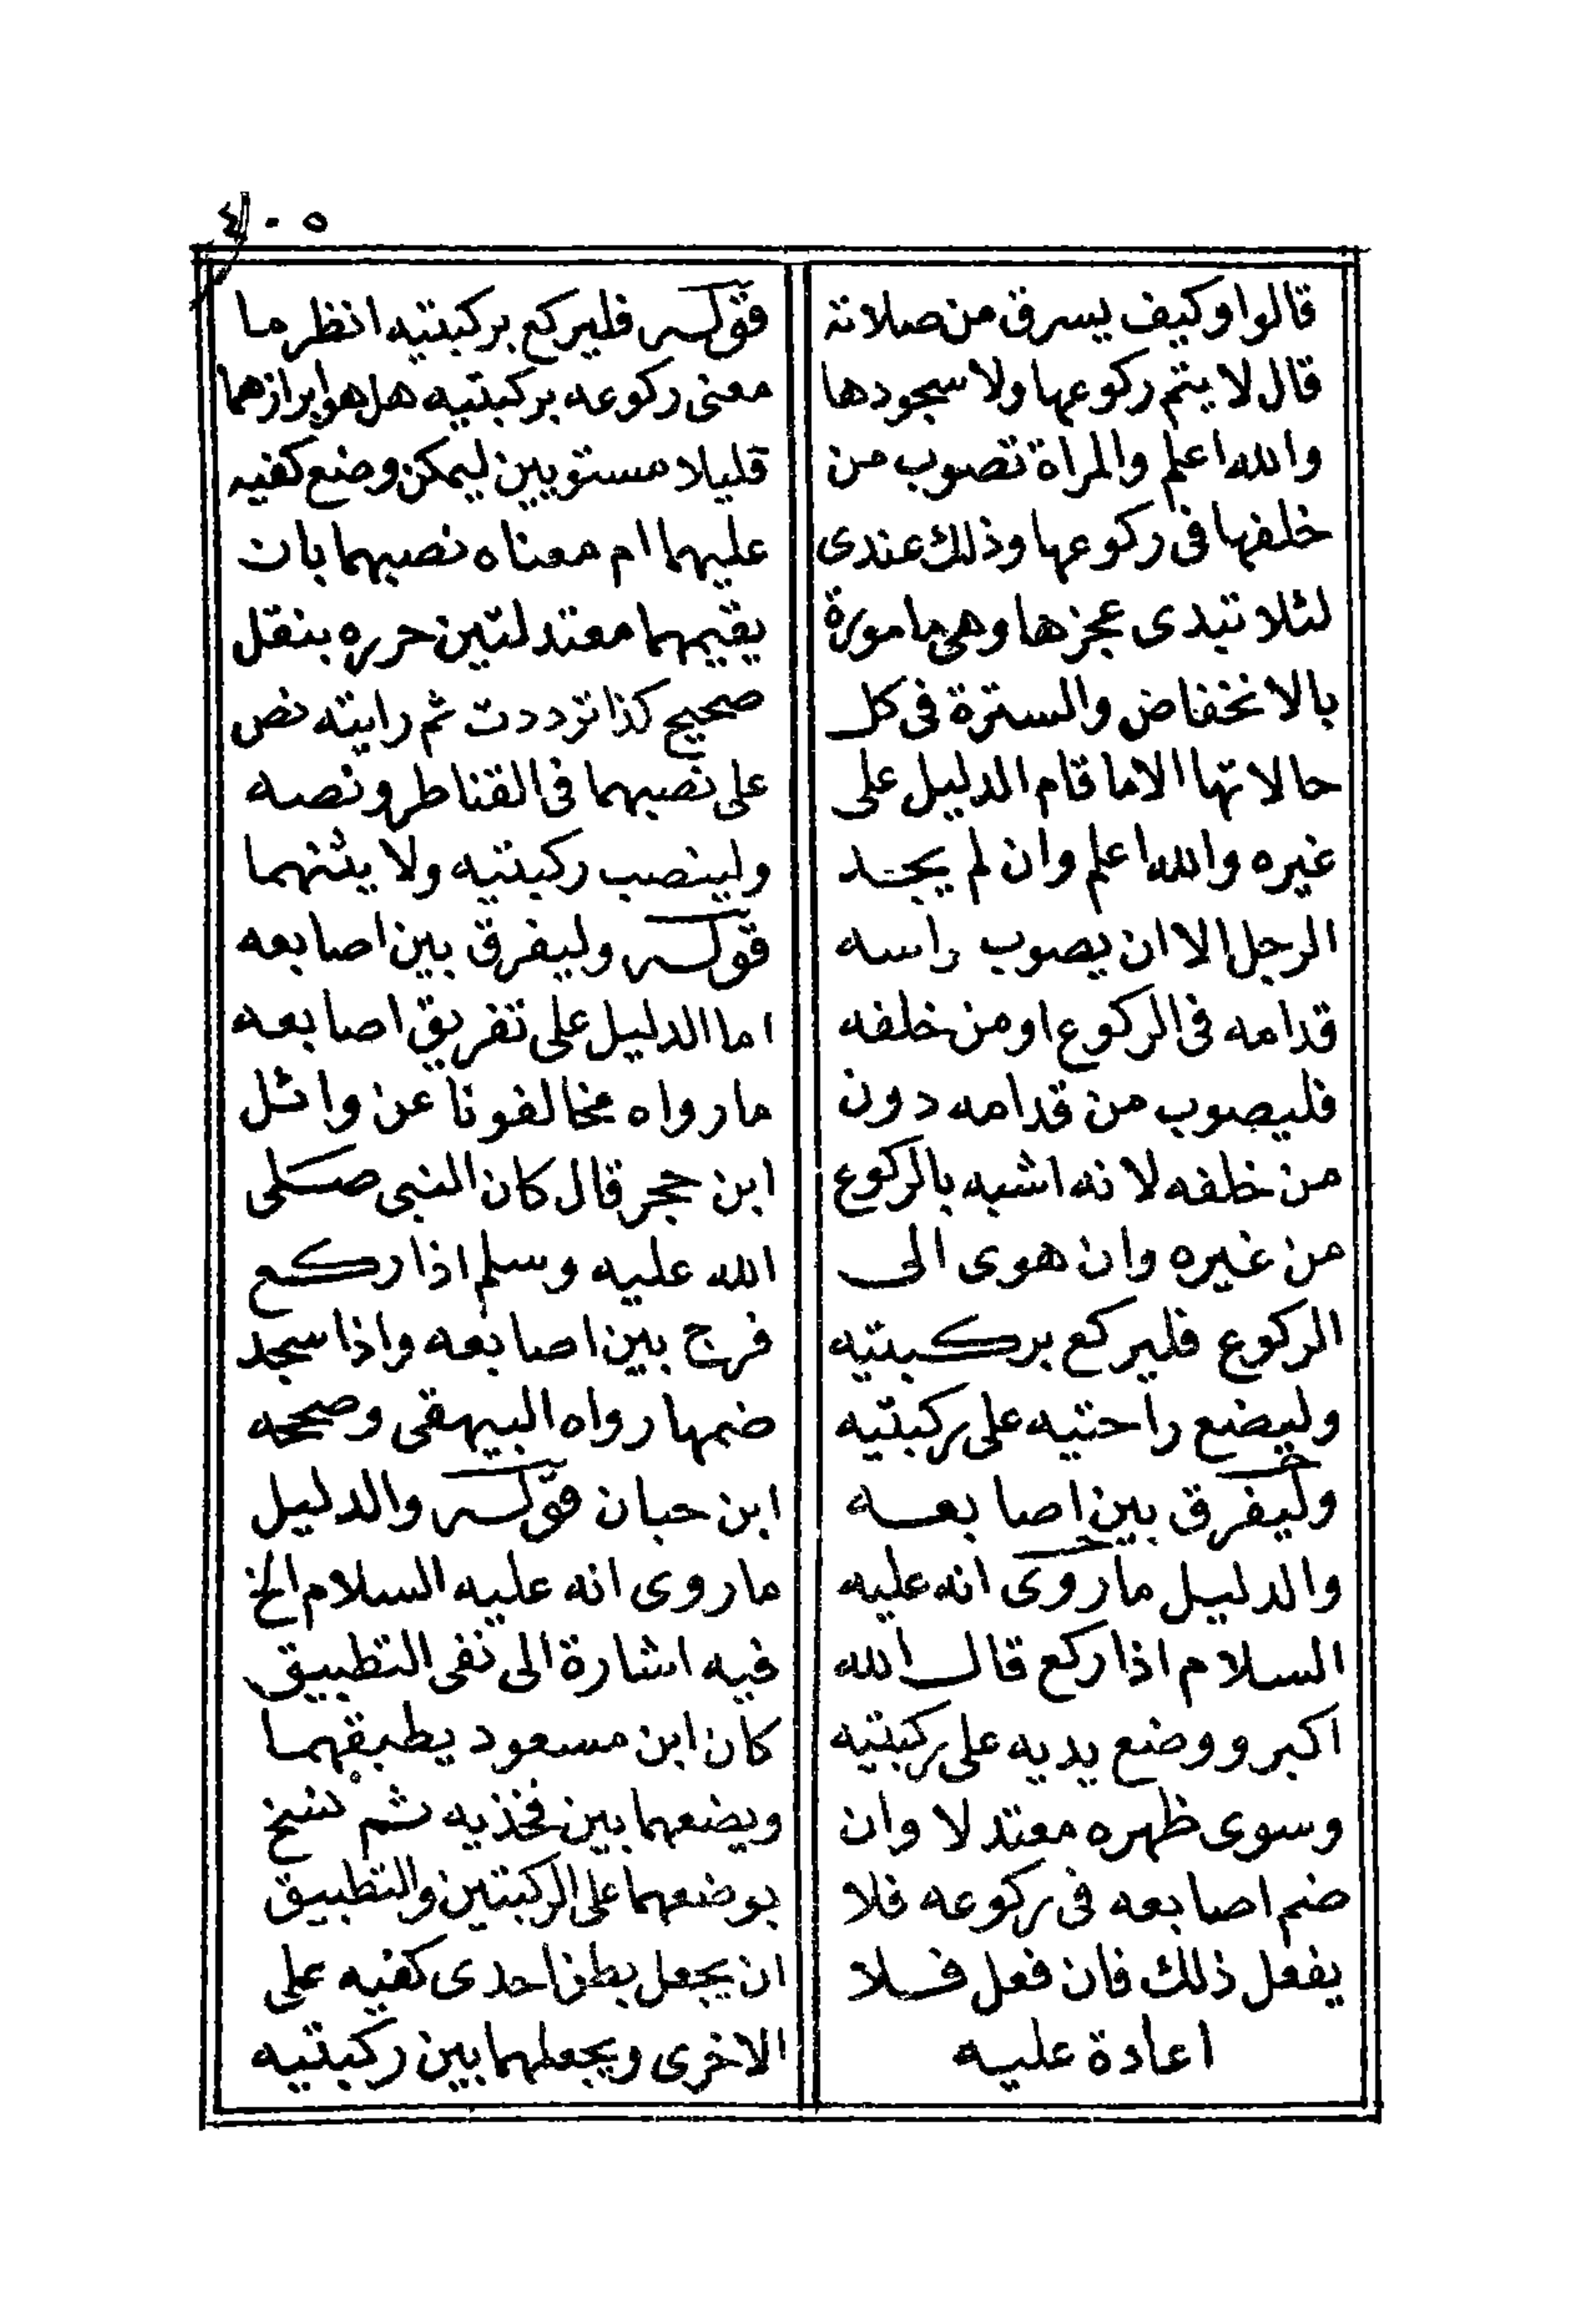 ٥٠٤
قالوا وكيف يسرق من صلاته
قال لا يتم ركوعها ولا سجودها
والله اعلم والمراة تصوب من
خلفها فى ركوعها وذلك عندى
لئلا تبدى عجزها وهى مامورة
بالانخفاض والسترة فى كل
حالاتها الا ما قام الدليل على
غيره والله اعلم وان لم يجد
الرجل الا ان يصوب راسه
قدامه فى الركوع او من خلفه
فليصوب من قدامه دون
من خلفه لانه اشبه بالركوع
من غيره وان هوى الى
الركوع فليركع بركبتيه
وليضع راحتيه على ركبتيه
وليفرق بين اصابعه
والدليل ما روى انه عليه
السلام اذا ركع قال الله
اكبر ووضع يديه على ركبتيه
وسوى ظهره معتدلا وان
ضم اصابعه فى ركوعه فلا
يفعل ذلك فان فعل فلا
اعادة عليه
قوله فليركع بركبتيه انظر ما
معنى ركوعه بركبتيه هل هو ابرازهما
قليلا مستويين ليمكن وضع كفيه
عليهما ام معناه نصبهما بان
يقيمهما معتدلتين حرره بنقل
صحيح كذا ترددت ثم رايته نص
على نصبهما فى القناطر ونصه
ولينصب ركبتيه ولا يثنهما
قوله وليفرق بين اصابعه
اما الدليل على تفريق اصابعه
ما رواه مخالفونا عن وائل
ابن حجر قال كان النبى صلى
الله عليه وسلم اذا ركع
فرج بين اصابعه واذا سجد
ضمها رواه البيهقى وصححه
ابن حبان قوله والدليل
ما روى انه عليه السلام الخ
فيه اشارة الى نفى التطبيق
كان ابن مسعود يطبقهما
ويضعهما بين فخذيه ثم نسخ
بوضعهما على الركبتين والتطبيق
ان يجعل بطن احدى كفيه على
الاخرى ويجعلهما بين ركبتيه